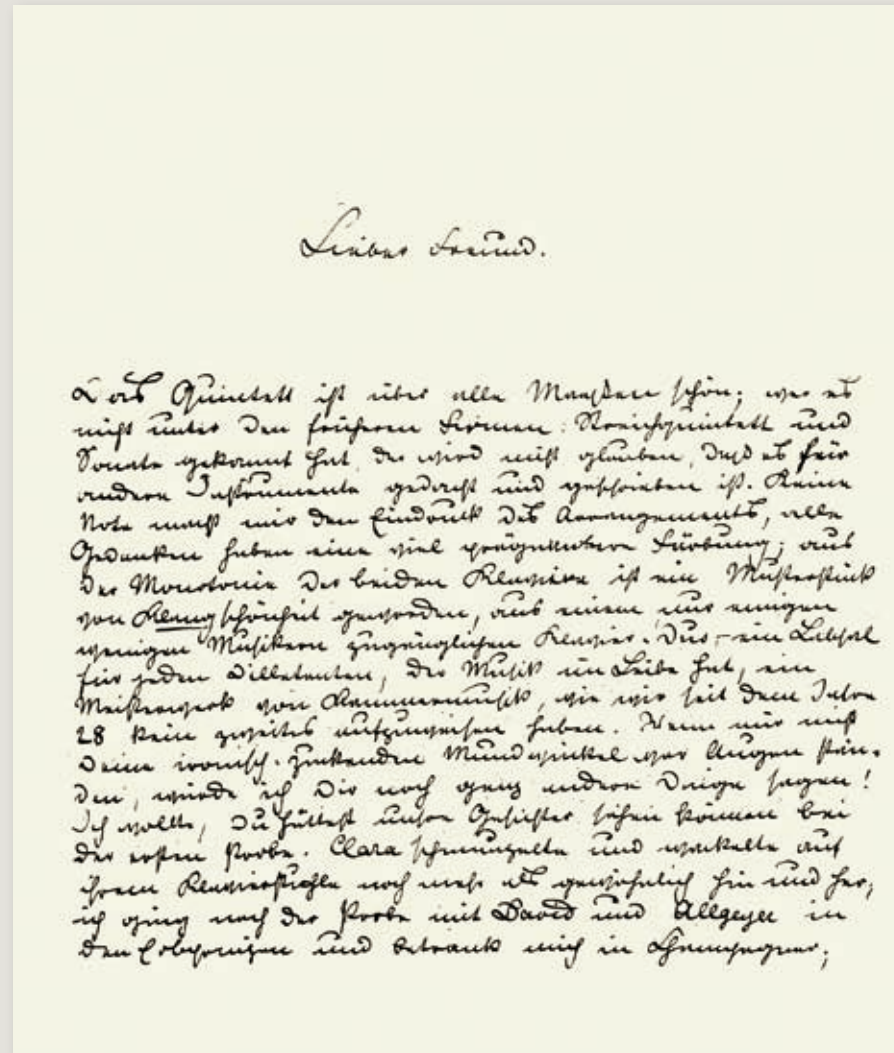 Lieber Freund.
Das Quintett ist über alle Maaßen schön; wer es
nicht unter den früheren Firmen: Streichquintett und
Sonate gekannt hat, der wird nicht glauben, daß es für
andere Instrumente gedacht und geschrieben ist. Keine
Note macht mir den Eindruck des Arrangements, alle
Gedanken haben eine viel prägnantere Färbung; aus
der Monotonie der beiden Klaviere ist ein Musterstück
von Klangschönheit geworden, aus einem nur einigen
wenigen Musikern zugänglichen Klavier-Duo – ein Labsal
für jeden Dilletanten, der Musik im Leibe hat, ein
Meisterwerk von Kammermusik, wie wir seit dem Jahre
28 kein zweites aufzuweisen haben. Wenn mir nicht
Deine ironisch-zuckenden Mundwinkel vor Augen stän-
den, würde ich Dir noch ganz andere Dinge sagen!
Ich wollte, Du hättest unsre Gesichter sehen können bei
der ersten Probe. Clara schmunzelte und wackelte auf
ihrem Klavierstuhle noch mehr als gewöhnlich hin und her;
ich ging nach der Probe mit David und Allgeyer in
den und betrank mich in Champagner;